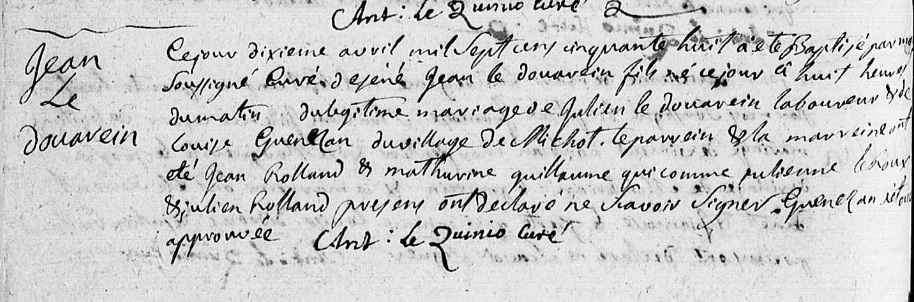 Ant: le Quinio Curé
Jean
Le
douarein
Cejour dixieme avril mil Sept cens cinquante huit a eté Baptisé par moy
Soussigné Curé Jean le douarein fils né cejour à huit heures
dumatin dulegitime mariage de Julien le douarein laboureur & de
Louise Guenezan duvillage de Michot. leparrein & la marreine ont
eté Jean Rolland & mathurine guillaume qui comme Julienne
& julien Rolland presens ont declaré ne Scavoir Signer. Guenezan
approuvée Ant: le Quinio Curé